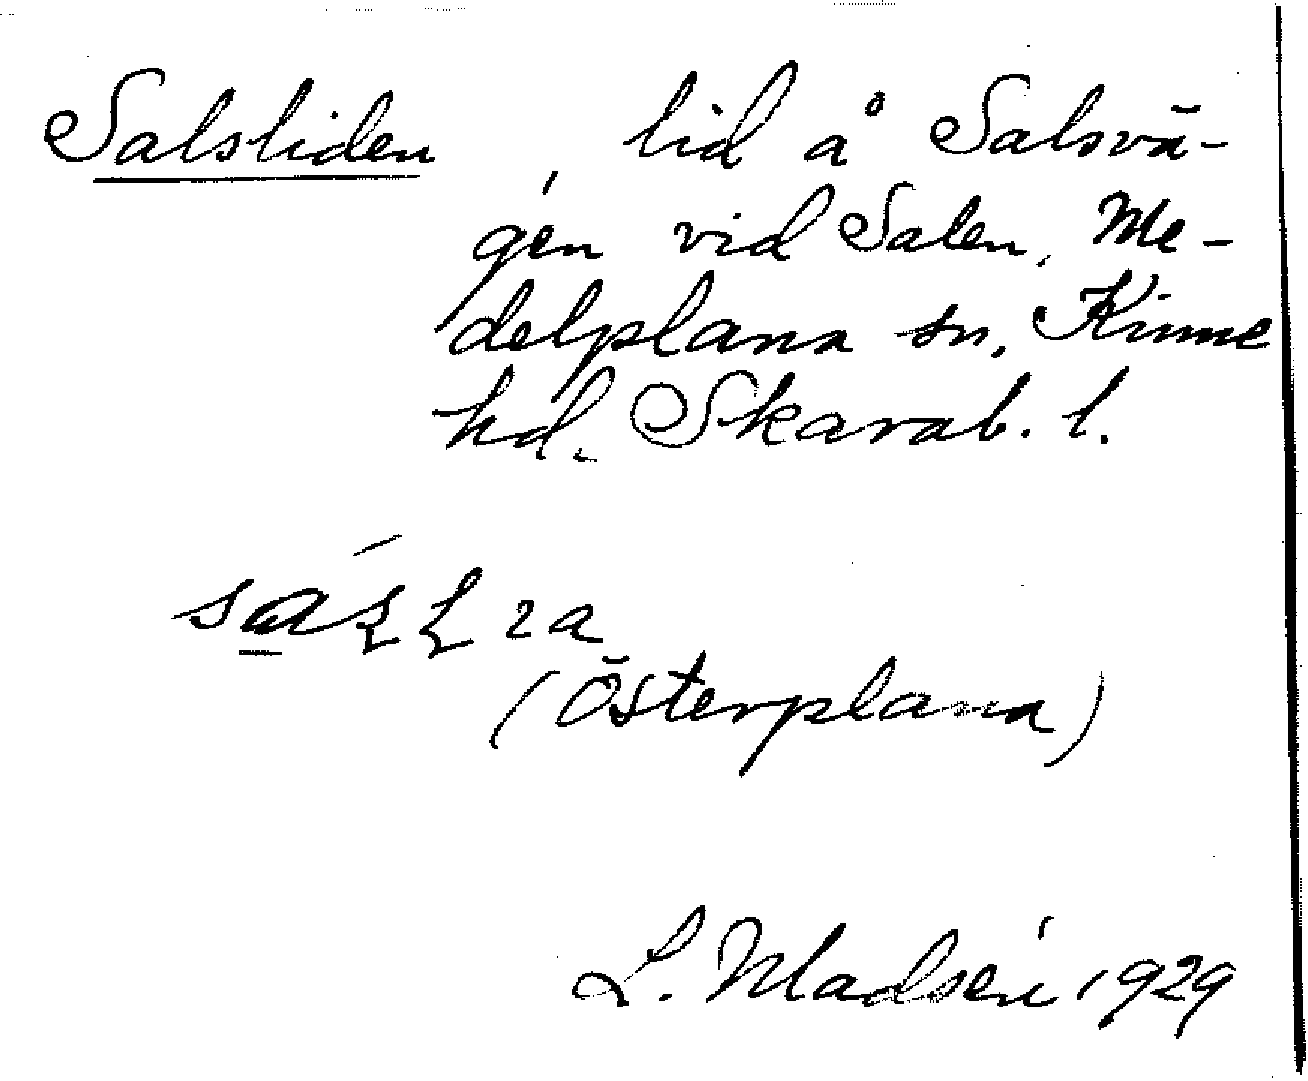 Salsliden lid å Salsvä-
gén vid Salen, Me-
delplana sn, Kinne
hd. Skarab. l.
(Österplana)
L. Madsén 1929